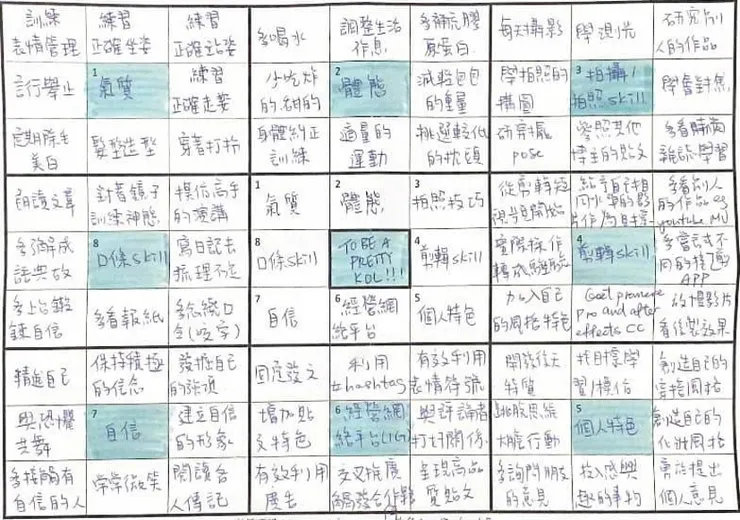 訓練
表情管理
練習
正確坐姿
練習
正確站姿
多喝水
調整生活
作息
多補充膠
原蛋白
每天攝影
學測光
研究別
人的作品
言行舉止
1
氣質
練習
正確走姿
少吃炸
的、甜的
2
體態
減輕包包
的重量
學拍照的
構圖
3
拍攝/
拍照 skill
學會對焦
定期除毛
美白
髮型造型
穿著打扮
身體糾正
訓練
適量的
運動
挑選較低
的枕頭
研究擺
pose
參照其他
博主的貼文
多看時尚
雜誌學習
朗讀文章
對著鏡子
訓練神態
模仿高手
的演講
1
氣質
2
體態
3
拍照技巧
從剪輯短
視頻開始
給自己相
同水準的影
片作為目標
多看別人
的作品 eg
youtube, MV
多了解成
語典故
8
口條 skill
寫日記去
梳理不足
8
口條 skill
TO BE A
PRETTY
KOL!!!
4
剪輯 skill
實際操作
4
剪輯 skill
多嘗試不
同的
APP
多上台鍛
鍊自信
多看報紙
多念繞口
令(咬字)
7
自信
6
經營網
絡平台
5
個人特色
加入自己
的風格特色
Get premiere
Pro and after
effects CC
看後製效果
精進自己
保持積極
的信念
發掘自己
的強項
固定發文
利用
#hashtag
有效利用
表情符號
開發後天
特質
找目標學
習/模仿
創造自己的
穿搭風格
與恐懼
共舞
7
自信
建立自信
的形象
增加貼
文特色
6
經營網
絡平台(IG)
與評論者
打好關係
跳脫思維
大膽行動
5
個人特色
創造自己的
化妝風格
多接觸有
自信的人
常常微笑
閱讀名
人傳記
有效利用
廣告
交叉推廣
觸發合作夥
呈現高品
質貼文
多詢問朋友
的意見
投入感興
趣的事物
勇於提出
個人意見